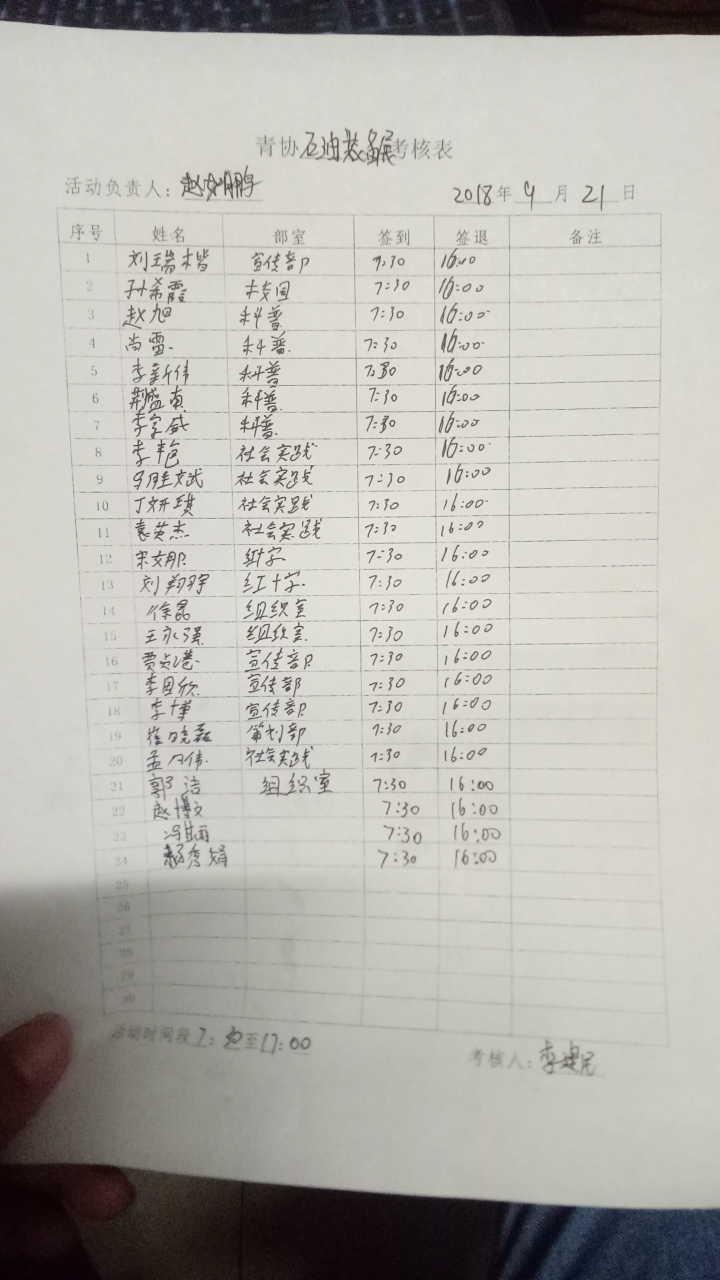 青协石油装备展考核表
活动负责人：赵 鹏
2018年 9 月 21 日
序号 姓名 部室 签到 签退 备注
1 刘瑞楷 宣传部 7:30 16:00
2 孙希霞 校园 7:30 16:00
3 赵旭 科普 7:30 16:00
4 尚雪 科普 7:30 16:00
5 李新伟 科普 7:30 16:00
6 荆盛 科普 7:30 16:00
7 李家威 科普 7:30 16:00
8 李艳 社会实践 7:30 16:00
9 斌 社会实践 7:30 16:00
10 丁妍琪 社会实践 7:30 16:00
11 袁英杰 社会实践 7:30 16:00
12 宋文 红十字 7:30 16:00
13 刘翔宇 红十字 7:30 16:00
14 徐磊 组织室 7:30 16:00
15 王永强 组织室 7:30 16:00
16 贾 港 宣传部 7:30 16:00
17 李国欣 宣传部 7:30 16:00
18 李博 宣传部 7:30 16:00
19 崔晓磊 策划部 7:30 16:00
20 孟 伟 社会实践 7:30 16:00
21 郭洁 组织室 7:30 16:00
22 赵博文 7:30 16:00
23 冯 7:30 16:00
24 杨秀娟 7:30 16:00
25
26
27
28
29
30
活动时间段7: 至17:00
考核人：李建民